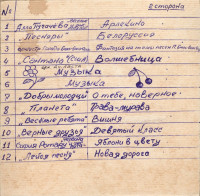 №
II сторона
1 Алла Пугачева Арлекино
2 "Песняры" Белоруссия
3 оркестр Фантазия на темы песен
4 Сантана (Сан.) Волшебница
5 Музыка
6 Музыка
7 "Добры молодцы" О тебе, наверное
8 "Планета" Трава-мурава
9 "Веселые ребята" Вишня
10 "Верные друзья" Девятый класс
11 София Ротару Яблони в цвету
12 "Лейся песня" Новая дорога